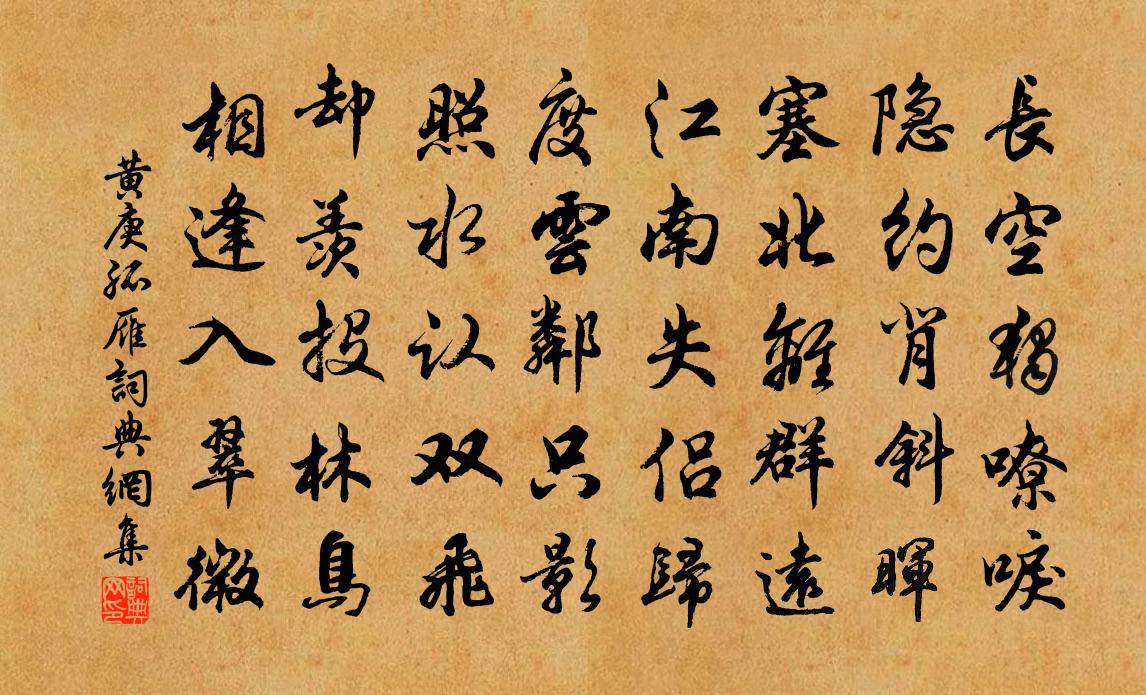 長空獨嘹唳
隐约肖斜暉
塞北離群遠
江南失侣歸
度雲鄰只影
照水认双飛
却羨投林鳥
相逢入翠微
黄庚孤雁詞典網集
詞典网印